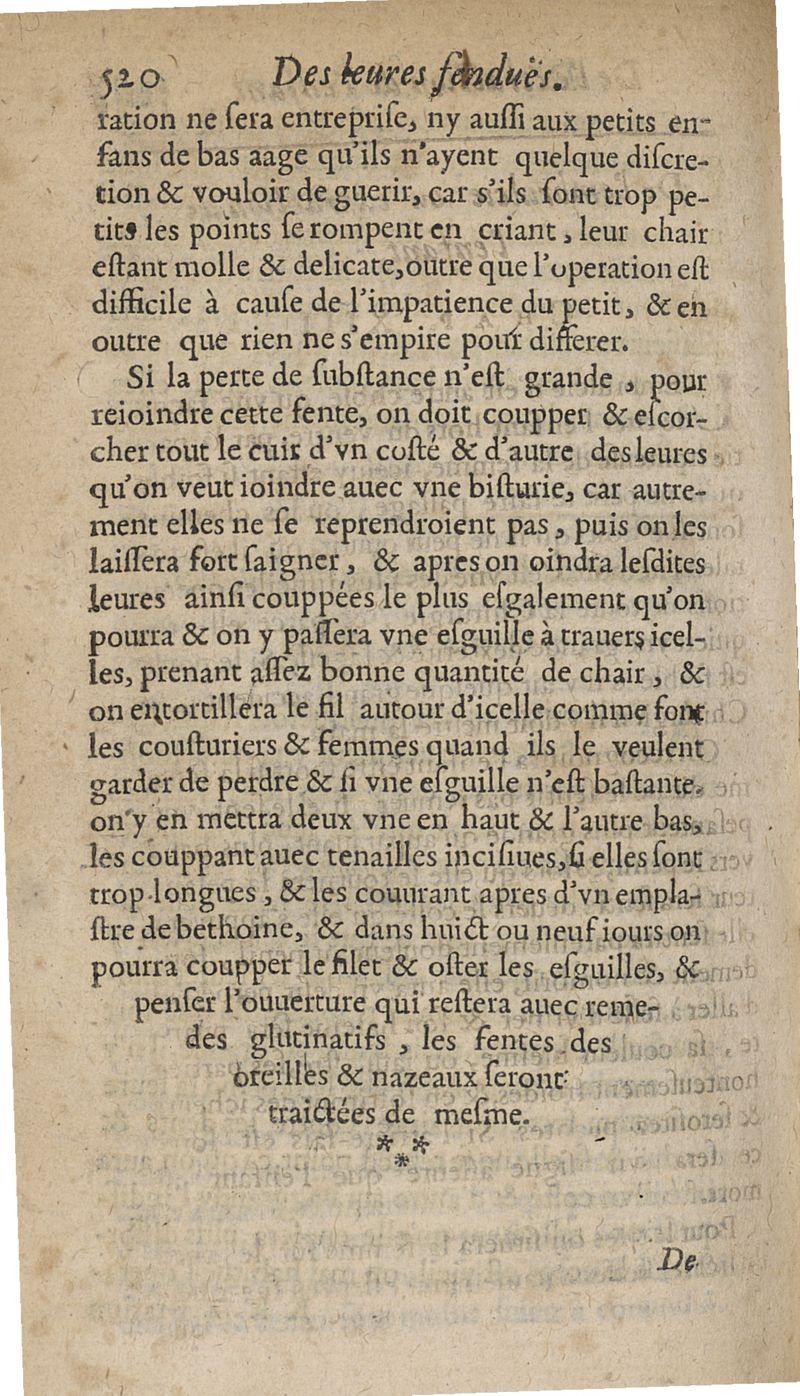 520 Des leures fenduës.
ration ne ſera entrepriſe, ny auſſi aux petits en-
fans de bas aage qu'ils n'ayent quelque diſcre-
tion & vouloir de guerir, car s'ils ſont trop pe-
tits les points ſe rompent en criant, leur chair
eſtant molle & delicate, outre que l'operation eſt
difficile à cauſe de l'impatience du petit, & en
outre que rien ne s'empire pour differer.
Si la perte de ſubſtance n'eſt grande, pour
reioindre cette fente, on doit coupper & eſcor-
cher tout le cuir d'vn coſté & d'autre des leures
qu'on veut ioindre auec vne biſturie, car autre-
ment elles ne ſe reprendroient pas, puis on les
laiſſera fort ſaigner, & apres on oindra leſdites
leures ainſi couppées le plus eſgalement qu'on
pourra & on y paſſera vne eſguille à trauers icel-
les, prenant aſſez bonne quantité de chair, &
on entortillera le fil autour d'icelle comme font
les couſturiers & femmes quand ils le veulent
garder de perdre & ſi vne eſguille n'eſt baſtante.
on y en mettra deux vne en haut & l'autre bas,
les couppant auec tenailles inciſiues, ſi elles ſont
trop longues, & les couurant apres d'vn empla-
ſtre de bethoine, & dans huict ou neuf iours on
pourra coupper le filet & oſter les eſguilles, &
penſer l'ouuerture qui reſtera auec reme-
des glutinatifs, les fentes des
oreilles & nazeaux ſeront
traictées de meſme.
* *
*
De